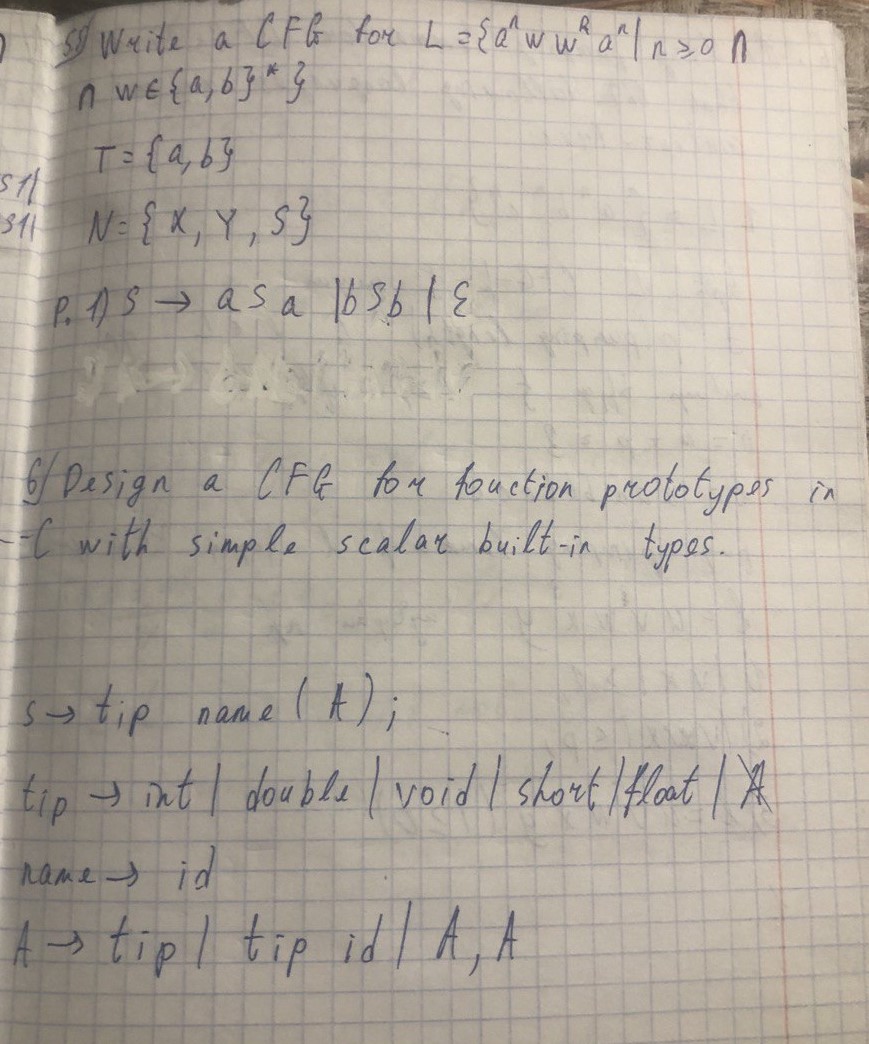 5) Write a CFG for L = {aⁿ w wᴿ aⁿ | n ≥ 0 ∩
∩ w ∈ {a, b}* }
T = {a, b}
S1|
S1|
N = { X, Y, S}
P. 1) S → a S a | b S b | ε
6) Design a CFG for fouction prototypes in
C with simple scalar built-in types.
s → tip name ( A ) ;
tip → int | double | void | short | float |
name → id
A → tip | tip id | A, A